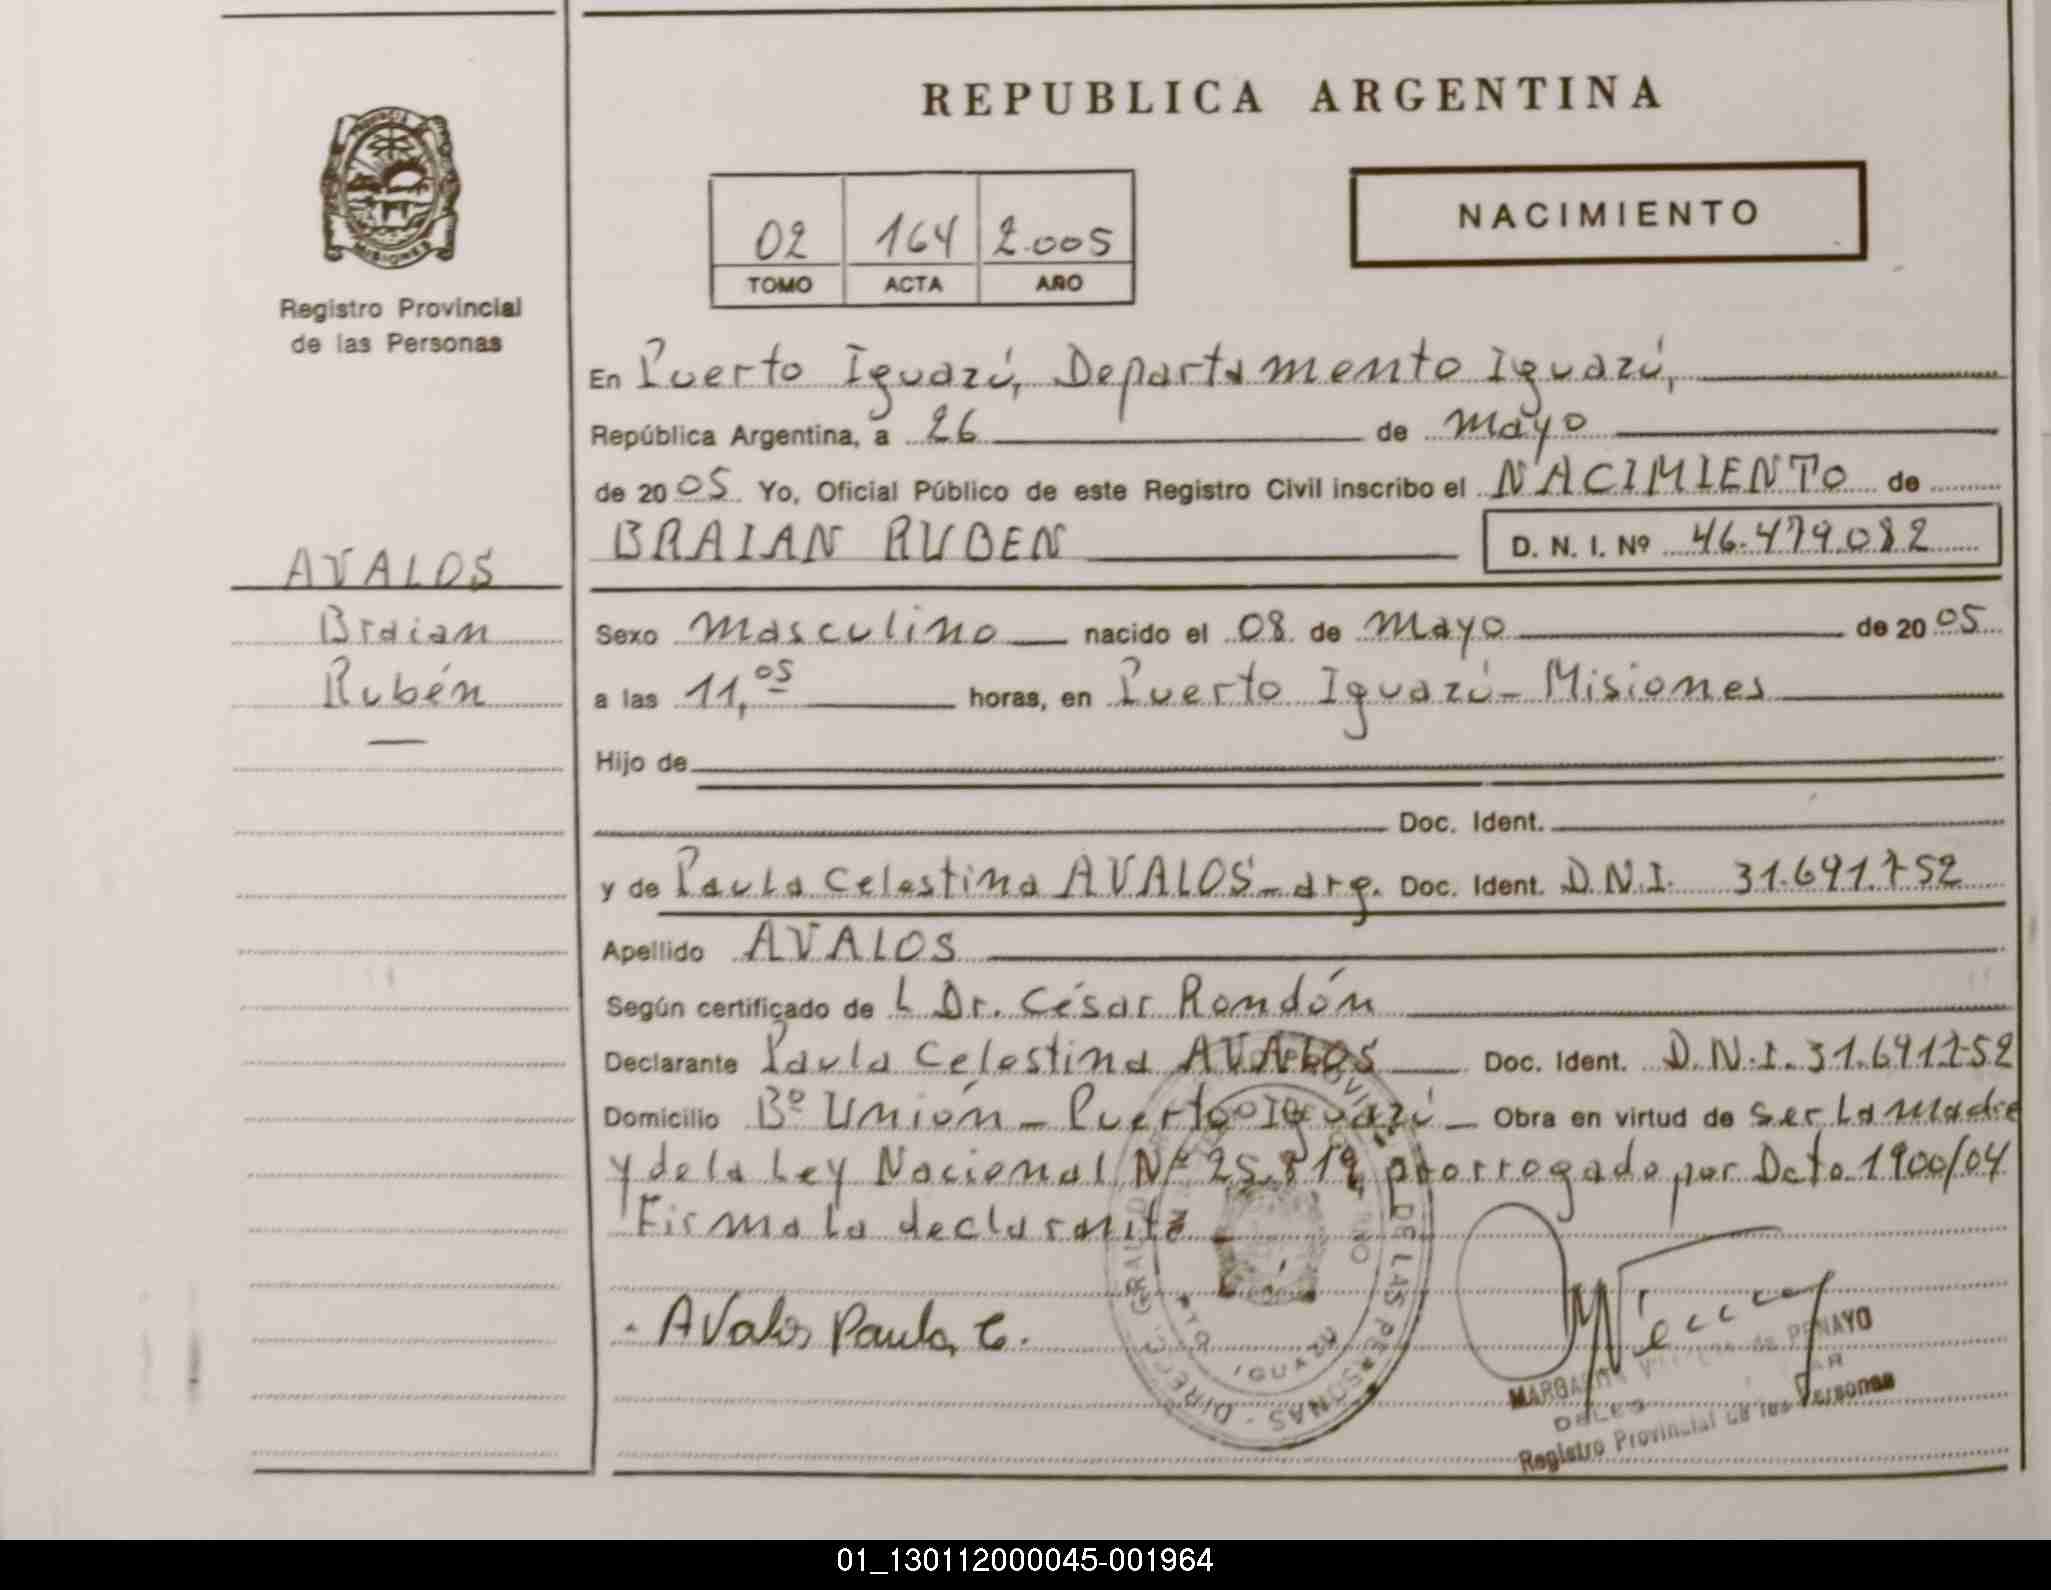 REPUBLICA ARGENTINA
PROVINCIA DE MISIONES
Registro Provincial
de las Personas
NACIMIENTO
02 164 2.005
TOMO ACTA AÑO
En Puerto Iguazú, Departamento Iguazú,
República Argentina, a 26 de mayo
de 2005 Yo, Oficial Público de este Registro Civil inscribo el NACIMIENTO de
BRAIAN RUBEN D. N. I. Nº 46.479.082
AVALOS
Braian
Rubén
Sexo masculino nacido el 08 de mayo de 2005
a las 11,05 horas, en Puerto Iguazú - Misiones
Hijo de
Doc. Ident.
y de Paula Celestina AVALOS - arg. Doc. Ident. D.N.I. 31.691.752
Apellido AVALOS
Según certificado de L Dr. César Rondón
Declarante Paula Celestina AVALOS Doc. Ident. D.N.I. 31.691.752
Domicilio Bº Unión - Puerto Iguazú - Obra en virtud de ser la madre
y de la Ley Nacional Nº 25.819 prorrogado por Dcto 1900/04
Firma la declarante
Avalos Paula, C.
DE LAS PERSONAS - DIREC. GRAL. D
PTO IGUAZU
MARGARITA de PENAYO
Registro Provincial de las Personas
01_130112000045-001964